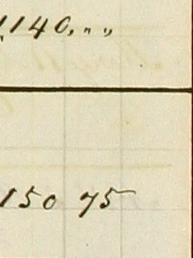 1140, „ „
150 75